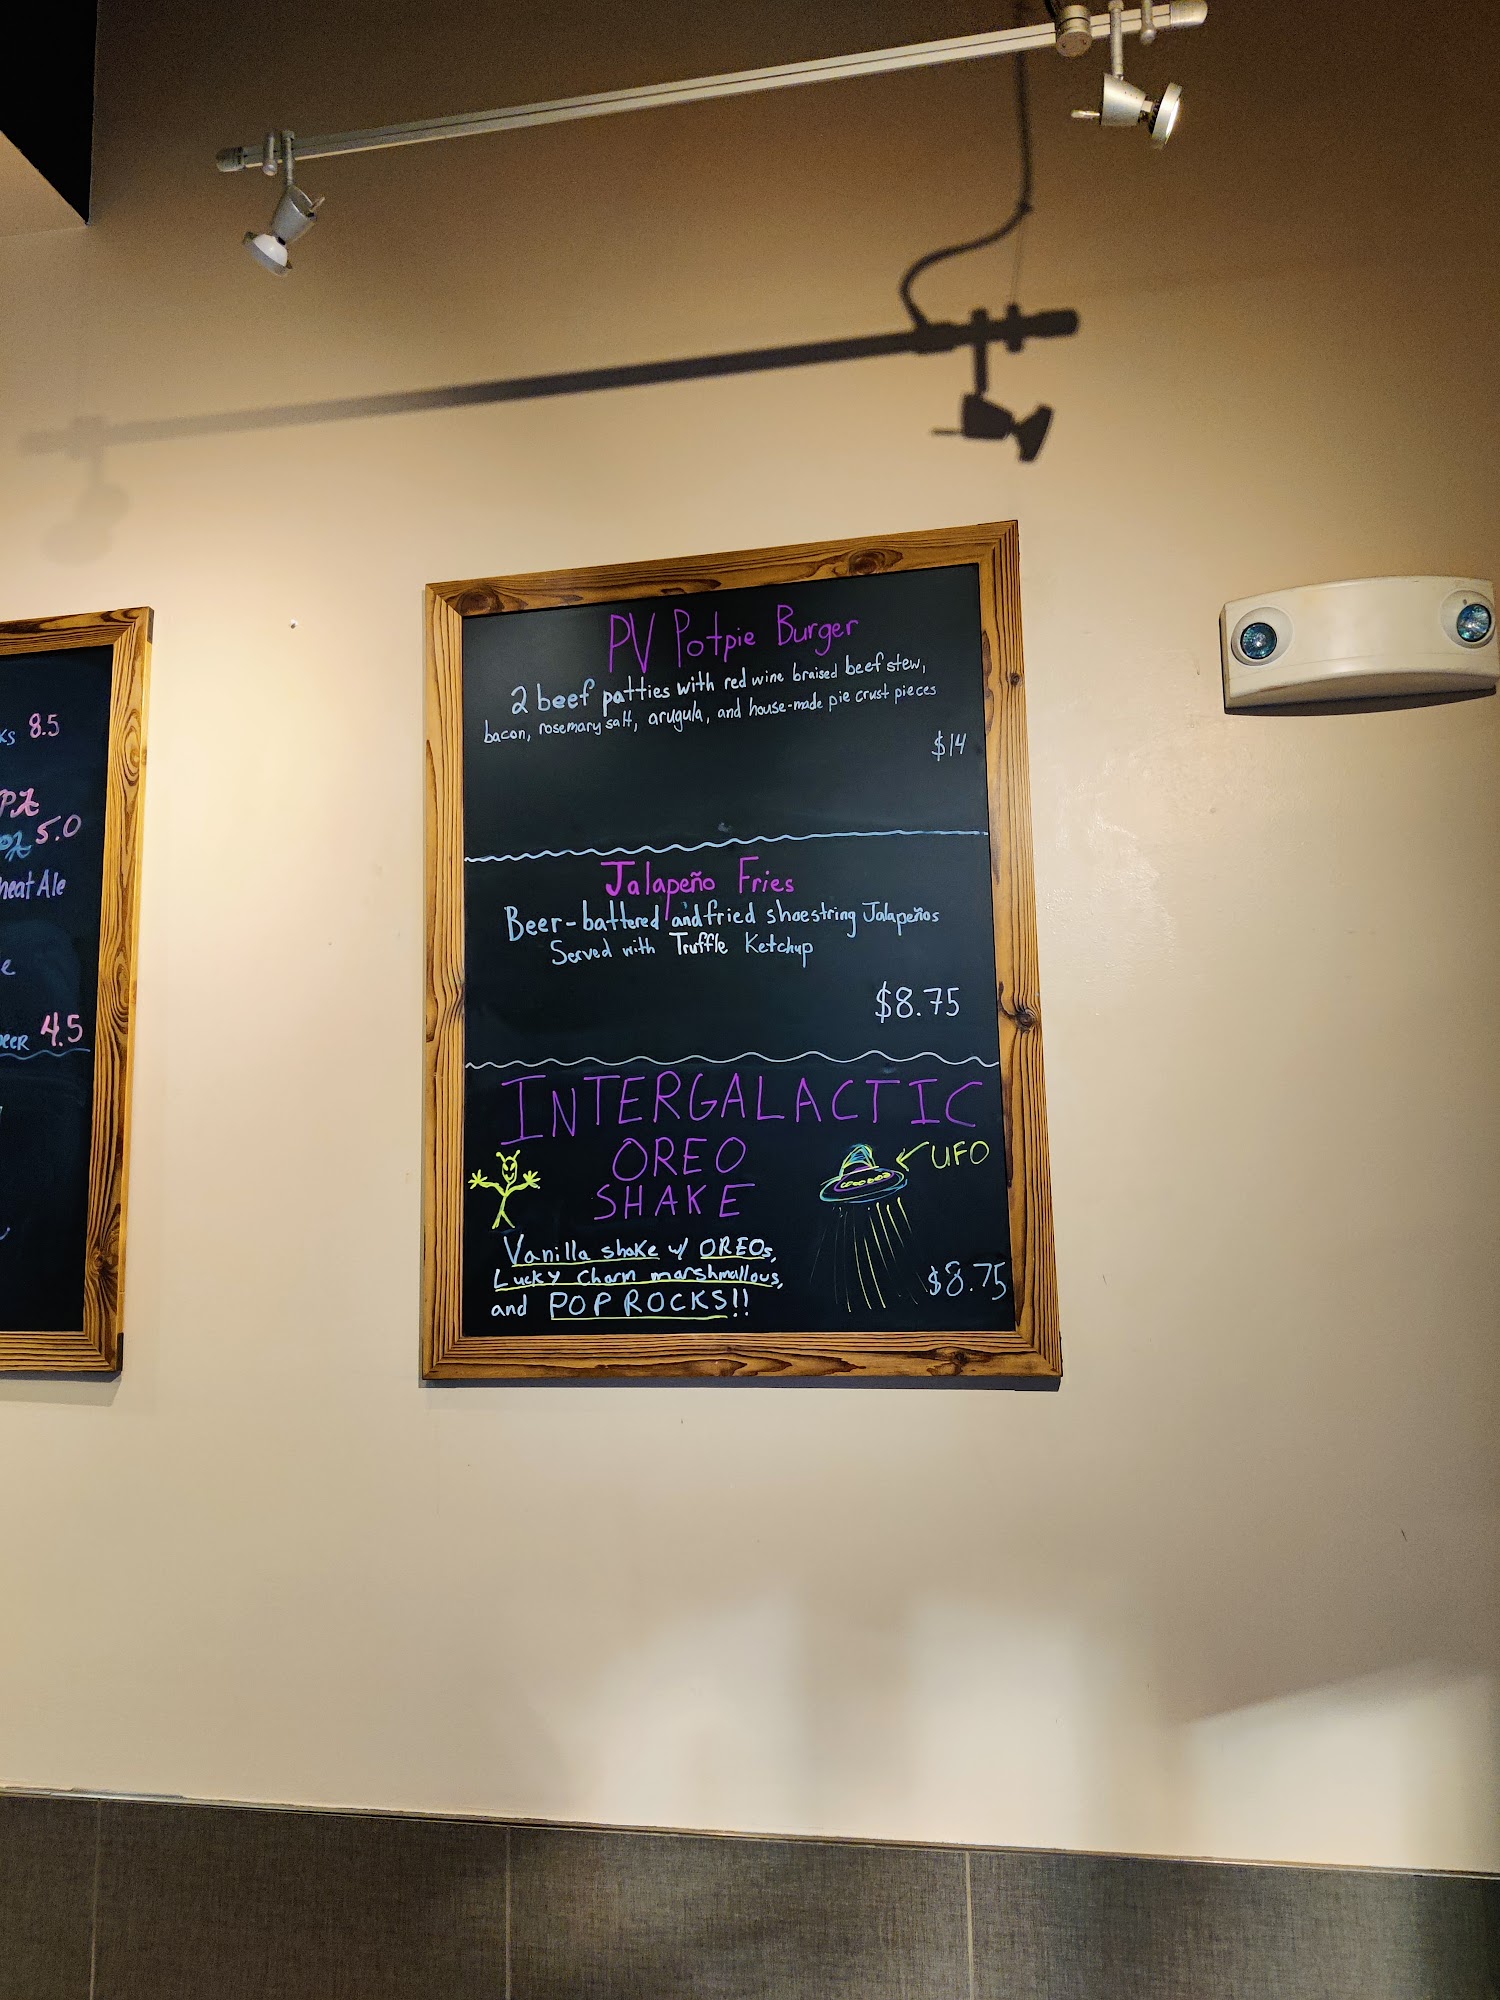 8.5
5.0
Ale
4.5
PV Potpie Burger
2 beef patties with red wine braised beef stew,
bacon, rosemary salt, arugula, and house-made pie crust pieces
$14
Jalapeño Fries
Beer-battered and fried shoestring Jalapeños
Served with Truffle Ketchup
$8.75
INTERGALACTIC
OREO
SHAKE
UFO
Vanilla shake w/ OREOs,
Lucky Charm marshmallows,
and POP ROCKS!!
$8.75